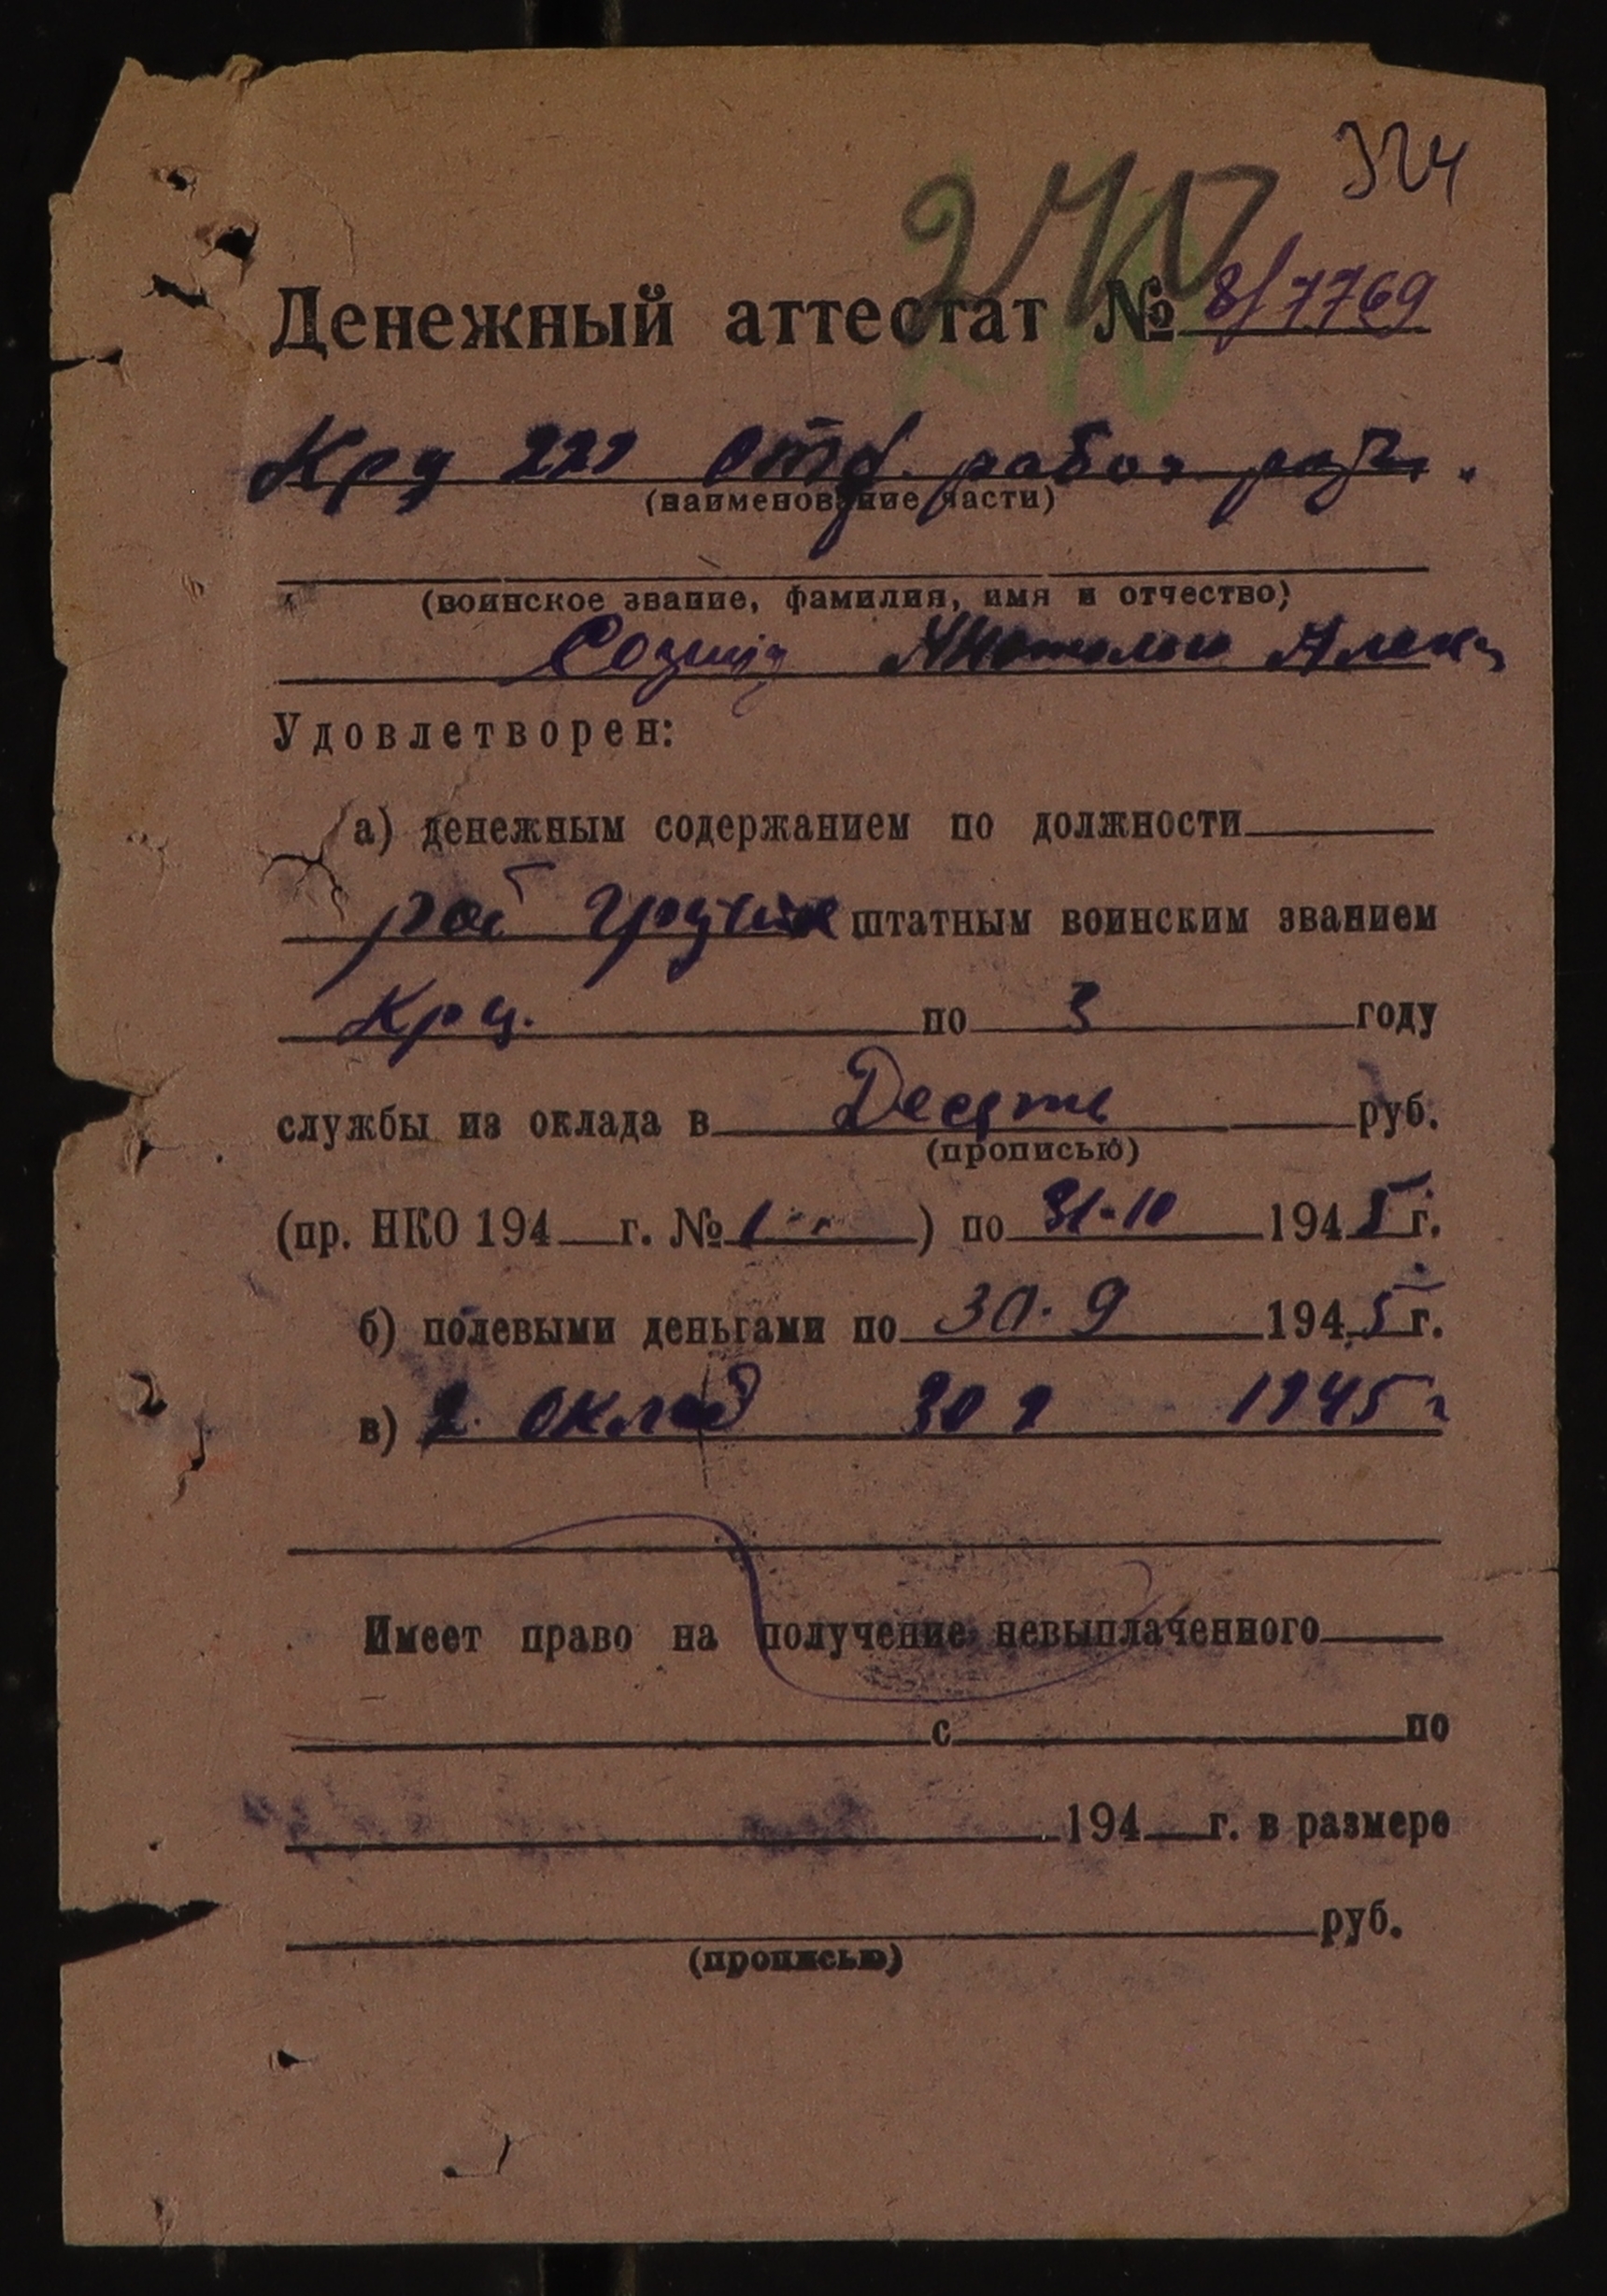 324
Денежный аттестат № 8/7769
Крц 221 отд. рабоч
(наименование части)
(воинское звание, фамилия, имя и отчество)
Алекс
Удовлетворен:
а) денежным содержанием по должности
штатным воинским званием
Крц. по 3 году
службы из оклада в Десять руб.
(прописью)
(пр. НКО 194 г. № 1 ) по 31-10 1945 г.
б) полевыми деньгами по 30.9 1945 г.
в) 2 оклад 30 9 1945 г
Имеет право на получение невыплаченного
с по
194 г. в размере
руб.
(прописью)